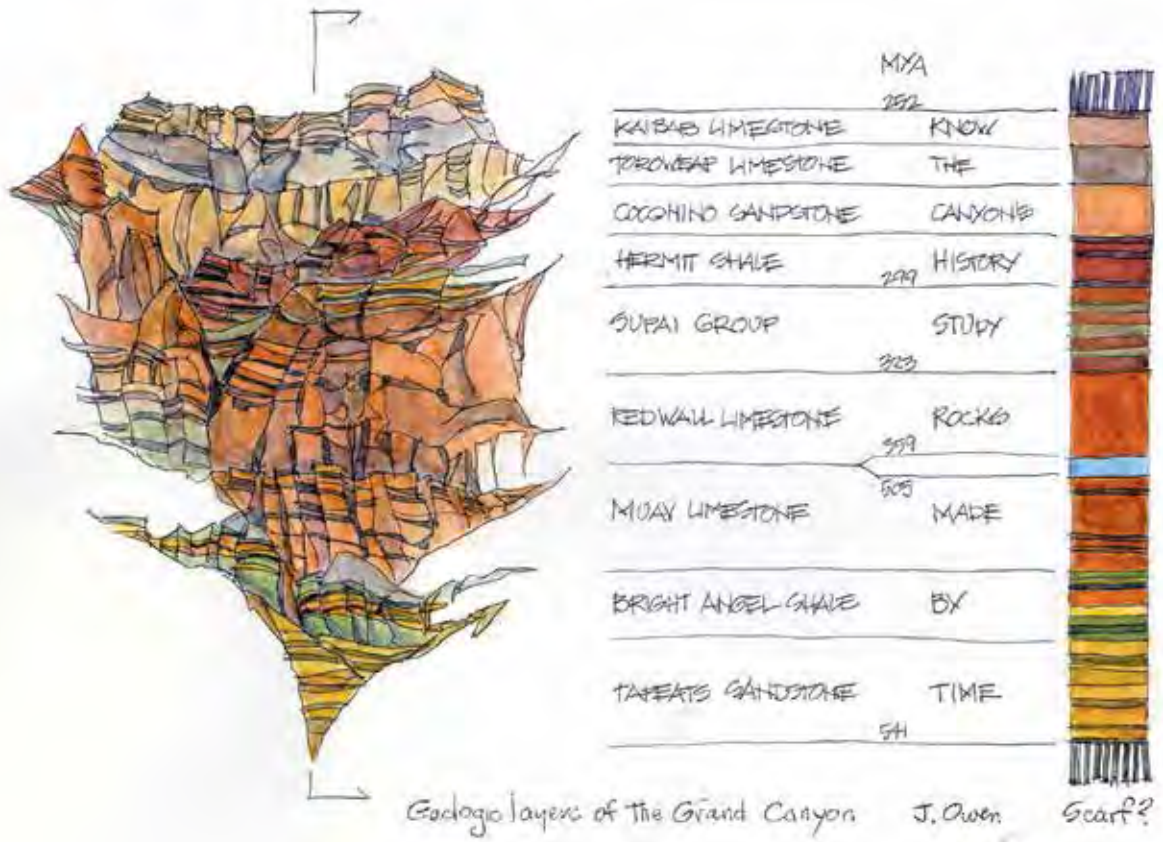 MYA
252
KAIBAB LIMESTONE KNOW
TOROWEAP LIMESTONE THE
COCONINO SANDSTONE CANYONS
HERMIT SHALE HISTORY
299
SUPAI GROUP STUDY
323
REDWALL LIMESTONE ROCKS
359
505
MUAV LIMESTONE MADE
BRIGHT ANGEL SHALE BY
TAPEATS SANDSTONE TIME
541
Geologic layers of the Grand Canyon J. Owen Scarf?